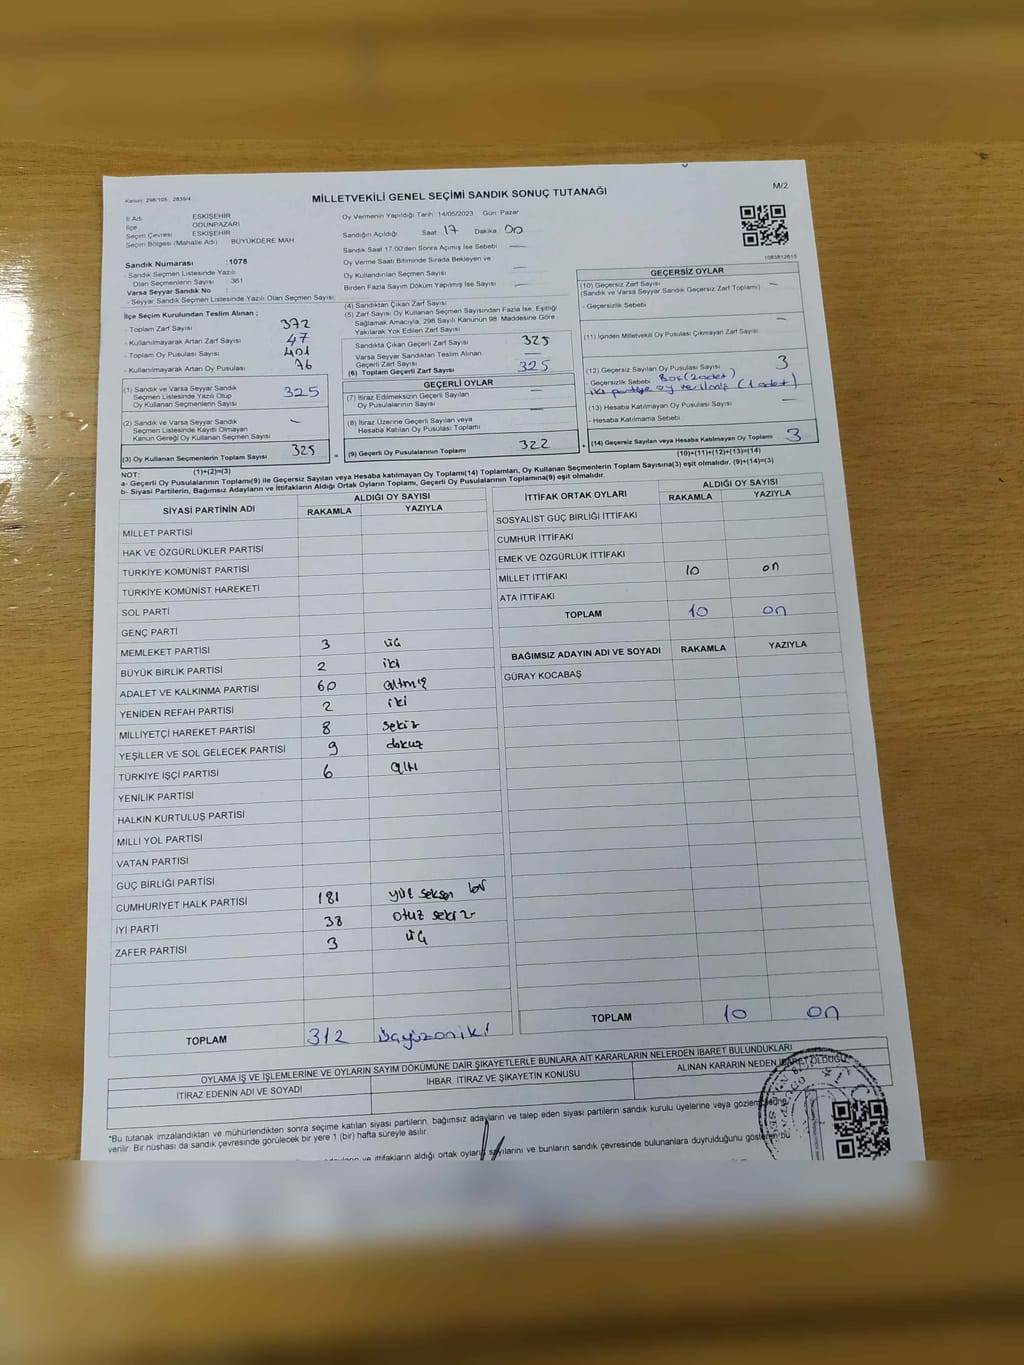 Kanun: 298/105 , 2839/4
MİLLETVEKİLİ GENEL SEÇİMİ SANDIK SONUÇ TUTANAĞI
M/2
İl Adı ESKİŞEHİR
İlçe ODUNPAZARI
Seçim Çevresi ESKİŞEHİR
Seçim Bölgesi (Mahalle Adı) BÜYÜKDERE MAH.
Oy Vermenin Yapıldığı Tarih :14/05/2023 Gün: Pazar
Sandığın Açıldığı Saat: 17 Dakika: 00
Sandık Saat 17:00'den Sonra Açımış İse Sebebi —
Oy Verme Saati Bitiminde Sırada Bekleyen ve
Oy Kullandırılan Seçmen Sayısı —
Birden Fazla Sayım Döküm Yapılmış İse Sayısı —
1083812813
Sandık Numarası :1078
- Sandık Seçmen Listesinde Yazılı
Olan Seçmenlerin Sayısı : 361
Varsa Seyyar Sandık No :
- Seyyar Sandık Seçmen Listesinde Yazılı Olan Seçmen Sayısı:
İlçe Seçim Kurulundan Teslim Alınan ;
- Toplam Zarf Sayısı 372
- Kullanılmayarak Artan Zarf Sayısı 47
- Toplam Oy Pusulası Sayısı 401
- Kullanılmayarak Artan Oy Pusulası 76
(1) Sandık ve Varsa Seyyar Sandık
Seçmen Listesinde Yazılı Olup
Oy Kullanan Seçmenlerin Sayısı 325
(2) Sandık ve Varsa Seyyar Sandık
Seçmen Listesinde Kayıtlı Olmayan
Kanun Gereği Oy Kullanan Seçmen Sayısı —
(3) Oy Kullanan Seçmenlerin Toplam Sayısı 325
(1)+(2)=(3)
(4) Sandıktan Çıkan Zarf Sayısı
(5) Zarf Sayısı Oy Kullanan Seçmen Sayısından Fazla İse; Eşitliği
Sağlamak Amacıyla; 298 Sayılı Kanunun 98. Maddesine Göre
Yakılarak Yok Edilen Zarf Sayısı
Sandıkta Çıkan Geçerli Zarf Sayısı 325
Varsa Seyyar Sandıktan Teslim Alınan
Geçerli Zarf Sayısı —
(6) Toplam Geçerli Zarf Sayısı 325
GEÇERLİ OYLAR
(7) İtiraz Edilmeksizin Geçerli Sayılan
Oy Pusulalarının Sayısı —
(8) İtiraz Üzerine Geçerli Sayılan veya
Hesaba Katılan Oy Pusulası Toplamı —
= (9) Geçerli Oy Pusulalarının Toplamı 322
GEÇERSİZ OYLAR
(10) Geçersiz Zarf Sayısı
(Sandık ve Varsa Seyyar Sandık Geçersiz Zarf Toplamı) —
- Geçersizlik Sebebi
(11) İçinden Milletvekili Oy Pusulası Çıkmayan Zarf Sayısı —
(12) Geçersiz Sayılan Oy Pusulası Sayısı 3
Geçersizlik Sebebi Boş (2 adet)
iki partiye oy verilmiş (1 adet)
(13) Hesaba Katılmayan Oy Pusulası Sayısı —
- Hesaba Katılmama Sebebi
+ (14) Geçersiz Sayılan veya Hesaba Katılmayan Oy Toplamı 3
(10)+(11)+(12)+(13)=(14)
NOT:
a- Geçerli Oy Pusulalarının Toplamı(9) ile Geçersiz Sayılan veya Hesaba katılmayan Oy Toplamı(14) Toplamları, Oy Kullanan Seçmenlerin Toplam Sayısına(3) eşit olmalıdır. (9)+(14)=(3)
b- Siyasi Partilerin, Bağımsız Adayların ve İttifakların Aldığı Ortak Oyların Toplamı, Geçerli Oy Pusulalarının Toplamına(9) eşit olmalıdır.
SİYASİ PARTİNİN ADI ALDIĞI OY SAYISI
RAKAMLA YAZIYLA
MİLLET PARTİSİ
HAK VE ÖZGÜRLÜKLER PARTİSİ
TÜRKİYE KOMÜNİST PARTİSİ
TÜRKİYE KOMÜNİST HAREKETİ
SOL PARTİ
GENÇ PARTİ
MEMLEKET PARTİSİ 3 üç
BÜYÜK BİRLİK PARTİSİ 2 iki
ADALET VE KALKINMA PARTİSİ 60 altmış
YENİDEN REFAH PARTİSİ 2 iki
MİLLİYETÇİ HAREKET PARTİSİ 8 sekiz
YEŞİLLER VE SOL GELECEK PARTİSİ 9 dokuz
TÜRKİYE İŞÇİ PARTİSİ 6 altı
YENİLİK PARTİSİ
HALKIN KURTULUŞ PARTİSİ
MİLLİ YOL PARTİSİ
VATAN PARTİSİ
GÜÇ BİRLİĞİ PARTİSİ
CUMHURİYET HALK PARTİSİ 181 yüz seksen bir
İYİ PARTİ 38 otuz sekiz
ZAFER PARTİSİ 3 üç
TOPLAM 312 üçyüzoniki
İTTİFAK ORTAK OYLARI ALDIĞI OY SAYISI
RAKAMLA YAZIYLA
SOSYALİST GÜÇ BİRLİĞİ İTTİFAKI
CUMHUR İTTİFAKI
EMEK VE ÖZGÜRLÜK İTTİFAKI
MİLLET İTTİFAKI 10 on
ATA İTTİFAKI
TOPLAM 10 on
BAĞIMSIZ ADAYIN ADI VE SOYADI RAKAMLA YAZIYLA
GÜRAY KOCABAŞ
TOPLAM 10 on
OYLAMA İŞ VE İŞLEMLERİNE VE OYLARIN SAYIM DÖKÜMÜNE DAİR ŞİKAYETLERLE BUNLARA AİT KARARLARIN NELERDEN İBARET BULUNDUKLARI
İTİRAZ EDENİN ADI VE SOYADI İHBAR, İTİRAZ VE ŞİKAYETİN KONUSU ALINAN KARARIN NEDEN İBARET OLDUĞU
"Bu tutanak imzalandıktan ve mühürlendikten sonra seçime katılan siyasi partilerin, bağımsız adayların ve talep eden siyasi partilerin sandık kurulu üyelerine veya gözlemcilerine
verilir. Bir nüshası da sandık çevresinde görülecek bir yere 1 (bir) hafta süreyle asılır.
ve ittifakların aldığı ortak oyların sayılarını ve bunların sandık çevresinde bulunanlara duyrulduğunu gösteren bu